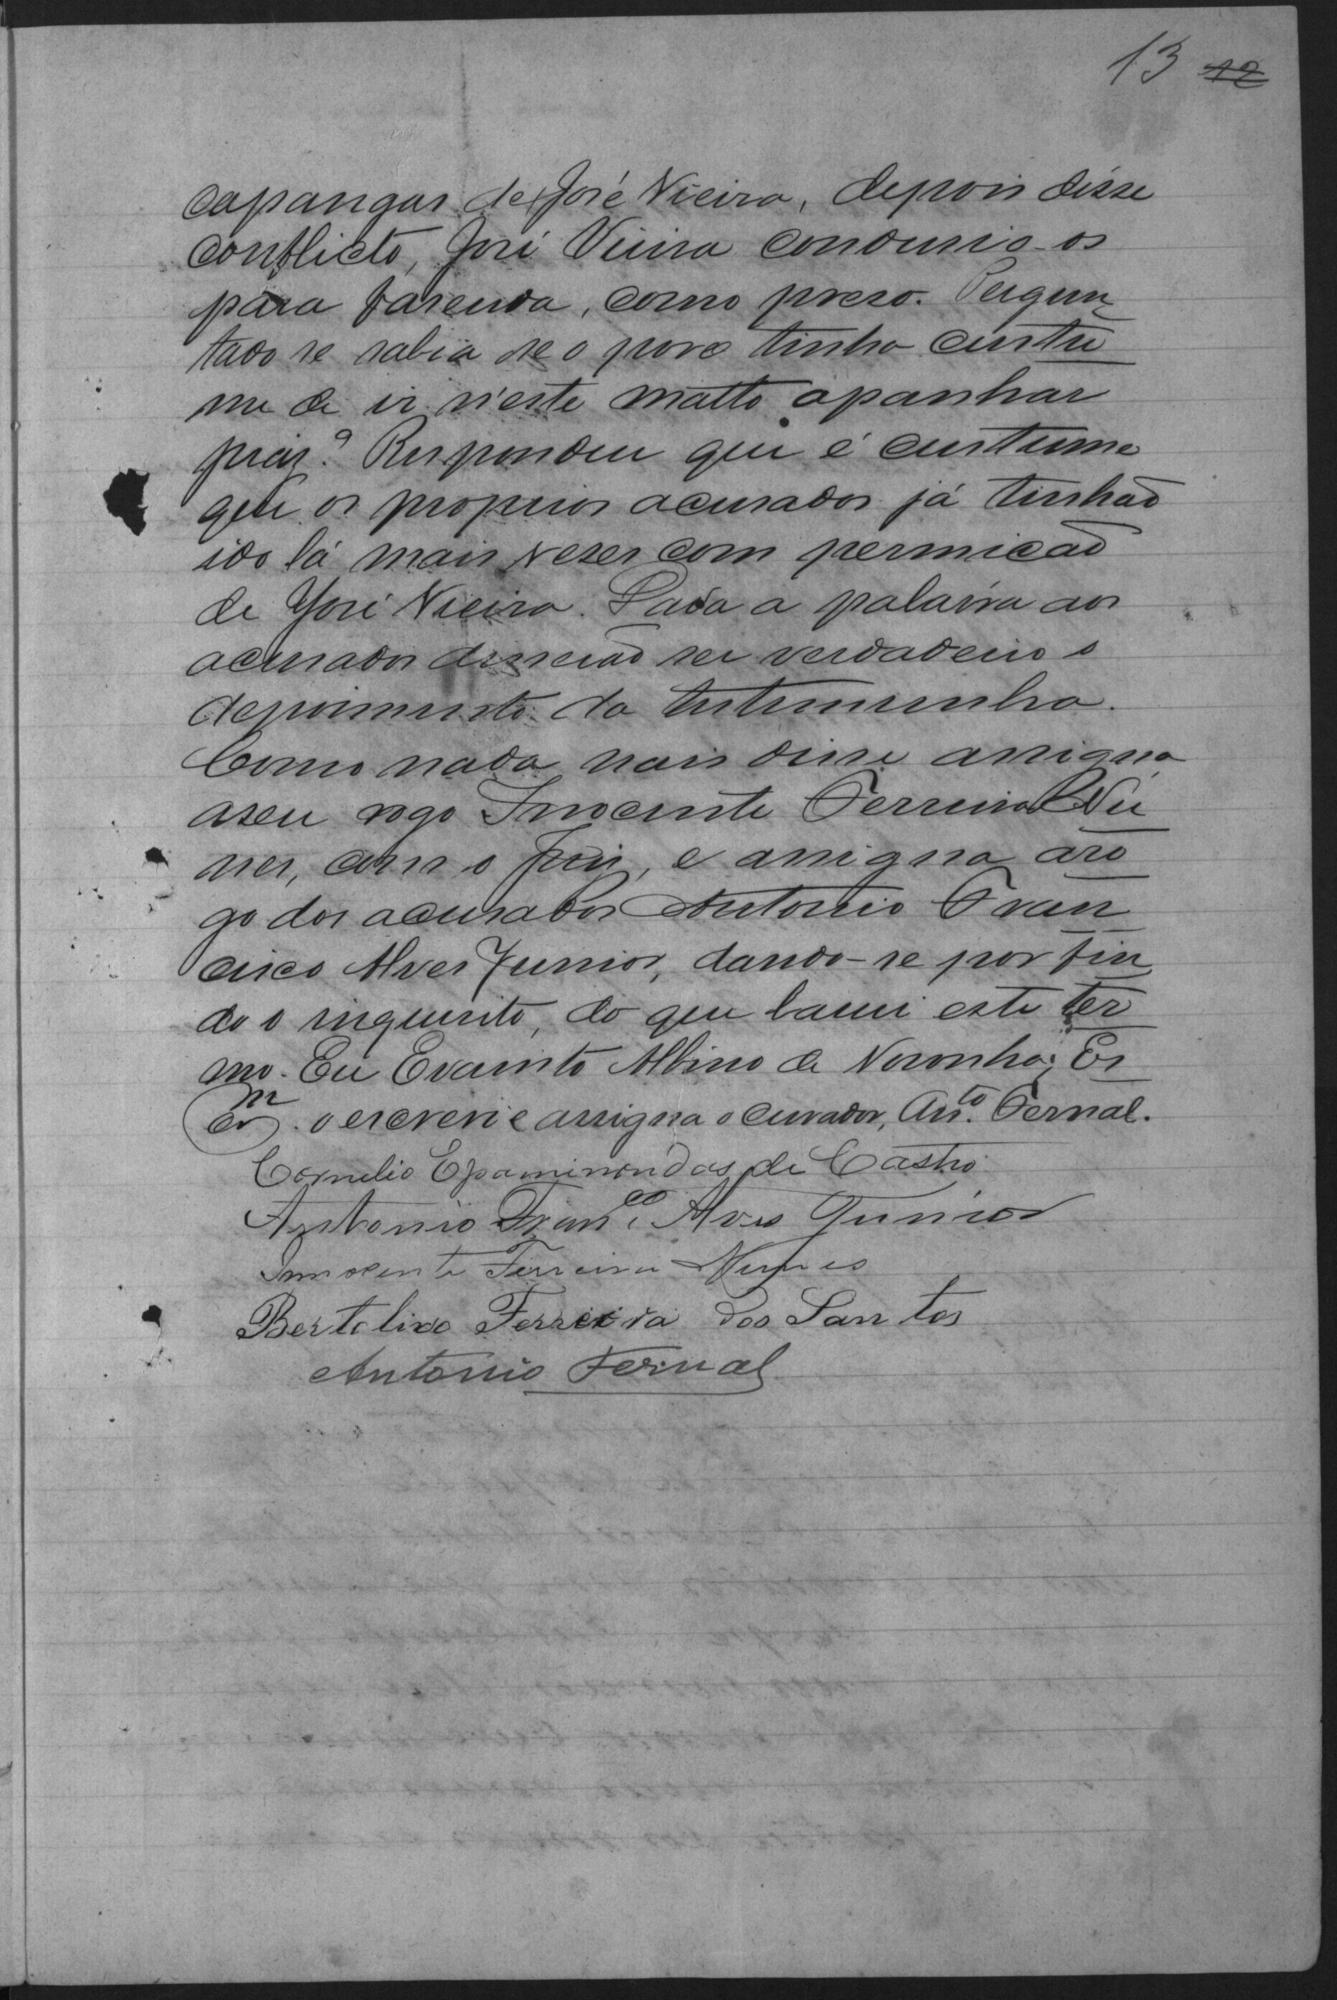 13 12
capangas de José Vieira, depois disse
conflicto, José Vieira condusio-os
para fasenda, como preso. Pergun
tado se sabia se o povo tinha custu
me de ir n'este matto apanhar
? Respondeu que é custume
que os proprios acusados já tinhaõ
ido lá mais veses com permicaõ
de José Vieira. Dada a palavra aos
acusados disseraõ ser verdadeiro o
depoimento da testimunha.
Como nada mais disse assigna
a seu rogo Inocente Ferreira Nu
nes, com o Juiz, e assigna aro
go dos acusados Antonio Fran
cisco Alves Junior, dando-se por fin
do o inquerito, do que lavrei este ter
mo. Eu Evaristo Albino de Noronha, Es
cr.m o escrevi e assigna o curador, Ant.to Fernal.
Cornelio Epaminondas de Castro
Antonio Fran.co Alves Junior
Innocente Ferreira Nunes
Bertolino Ferreira dos Santos
Antonio Fernal